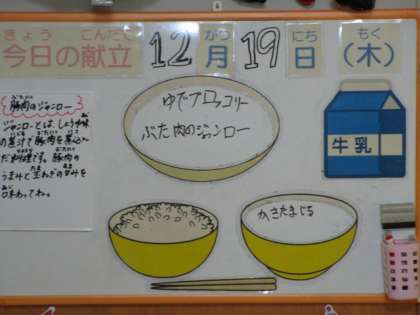 きょう こんだて
今日の献立 12月 19日 (木)
がつ にち もく
ゆでブロッコリー
ぶた肉のジャンロー
牛乳
かきたまじる
豚肉のジャンロー
ジャンローとは、しょうゆ味
の煮汁で豚肉を煮込ん
だ料理です。豚肉の
うまみと玉ねぎの甘みを
味わってね。